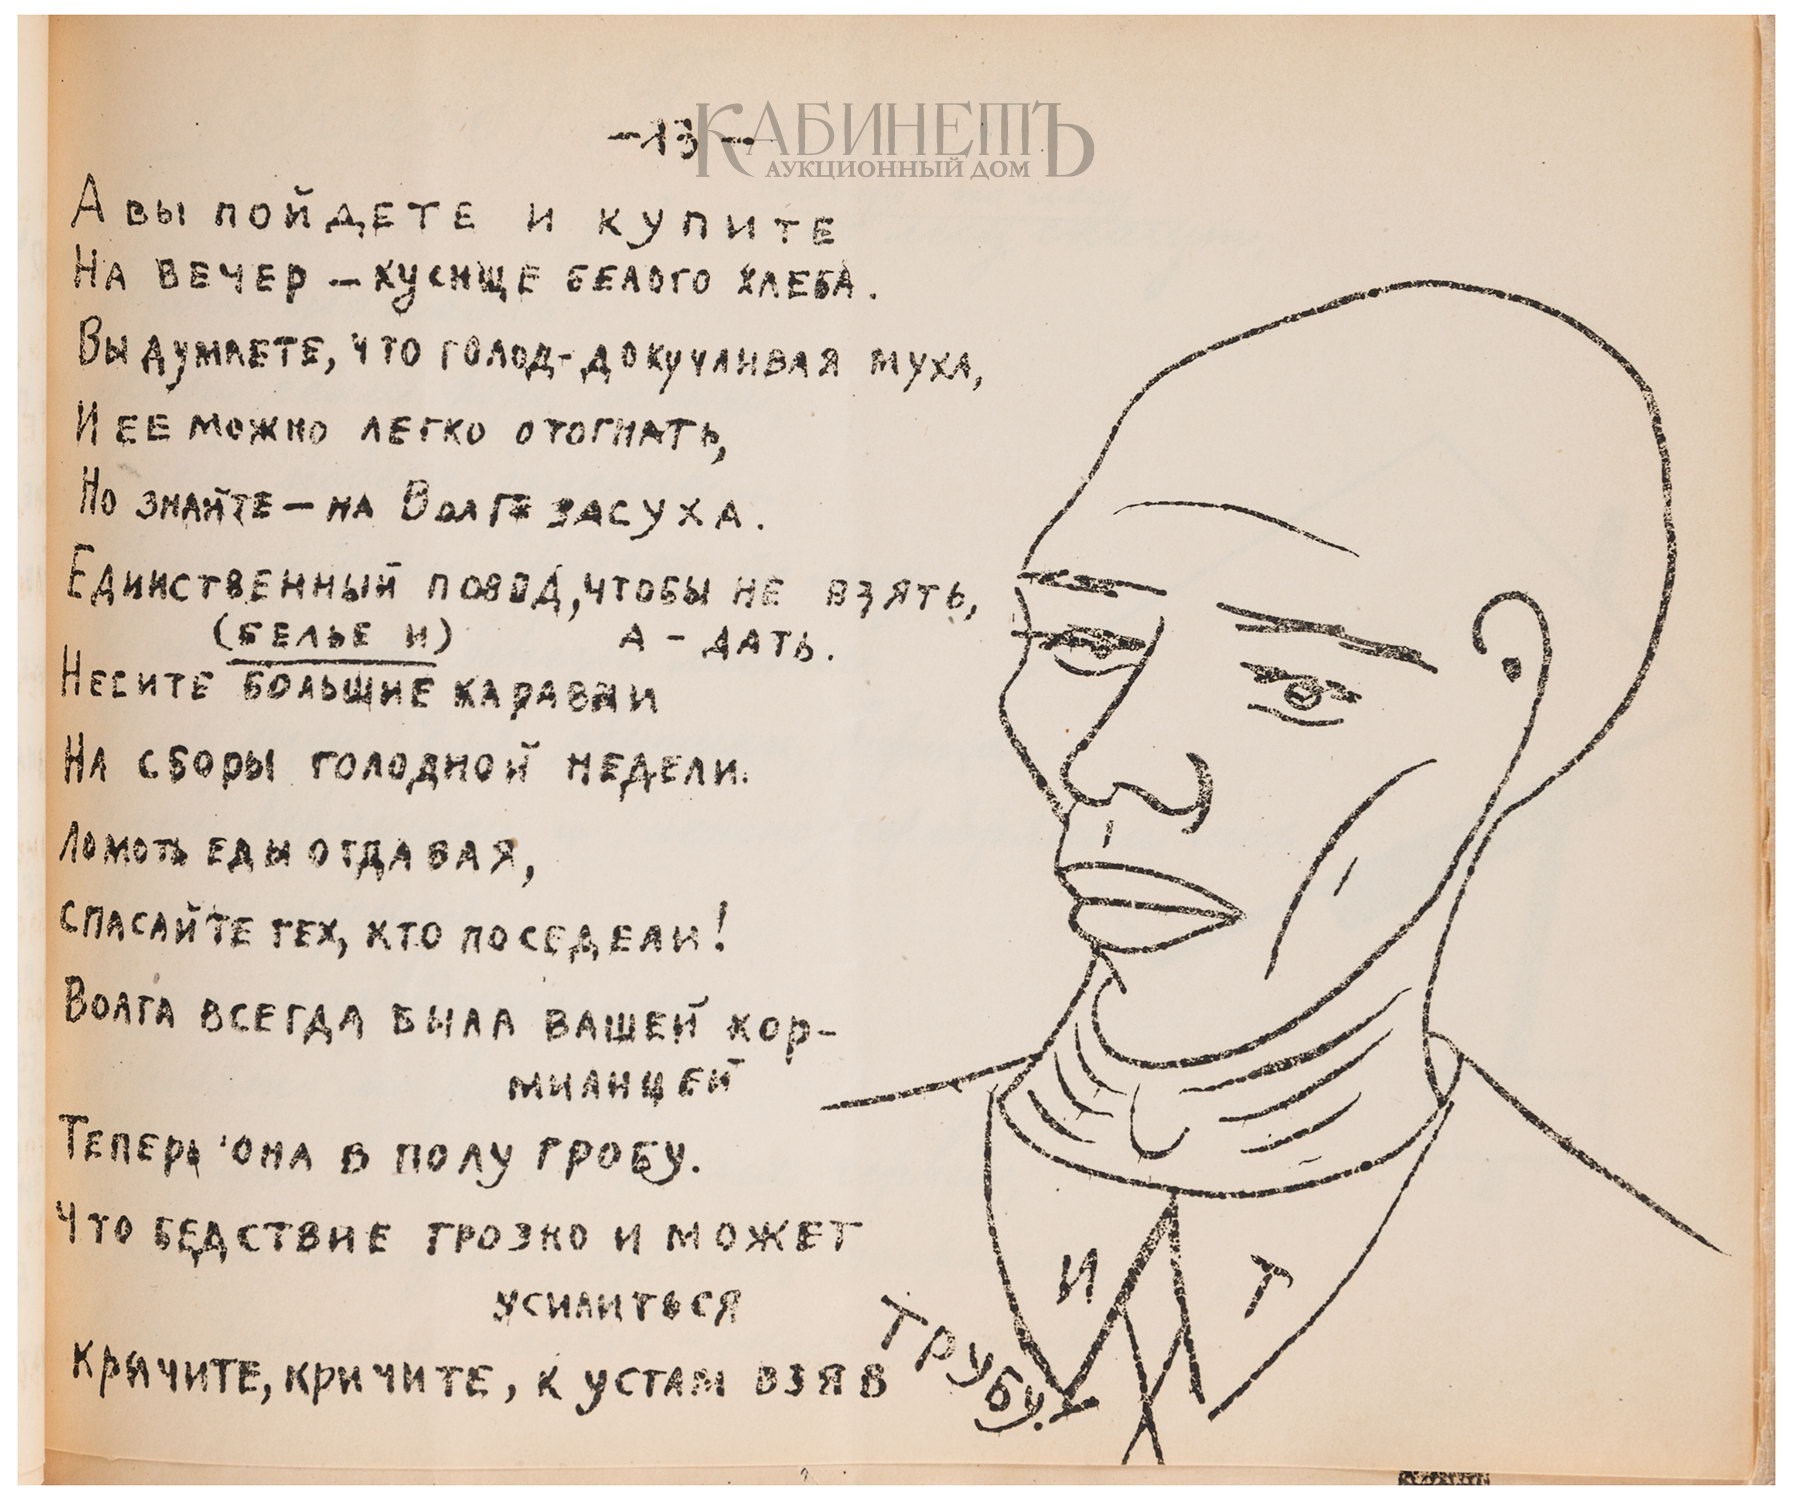 КАБИНЕТЪ
АУКЦИОННЫЙ ДОМ
-13-
А вы пойдете и купите
На вечер – кусище белого хлеба.
Вы думаете, что голод-докучливая муха,
И ее можно легко отогнать,
Но знайте – на Волге засуха.
Единственный повод, чтобы не взять,
(белье и) а – дать.
Несите большие караваи
На сборы голодной недели.
Ломоть еды отдавая,
спасайте тех, кто поседели!
Волга всегда была вашей кор-
милицей
Теперь она в полу гробу.
Что бедствие грозно и может
усилиться
Кричите, кричите, к устам взяв
трубу.
И Т